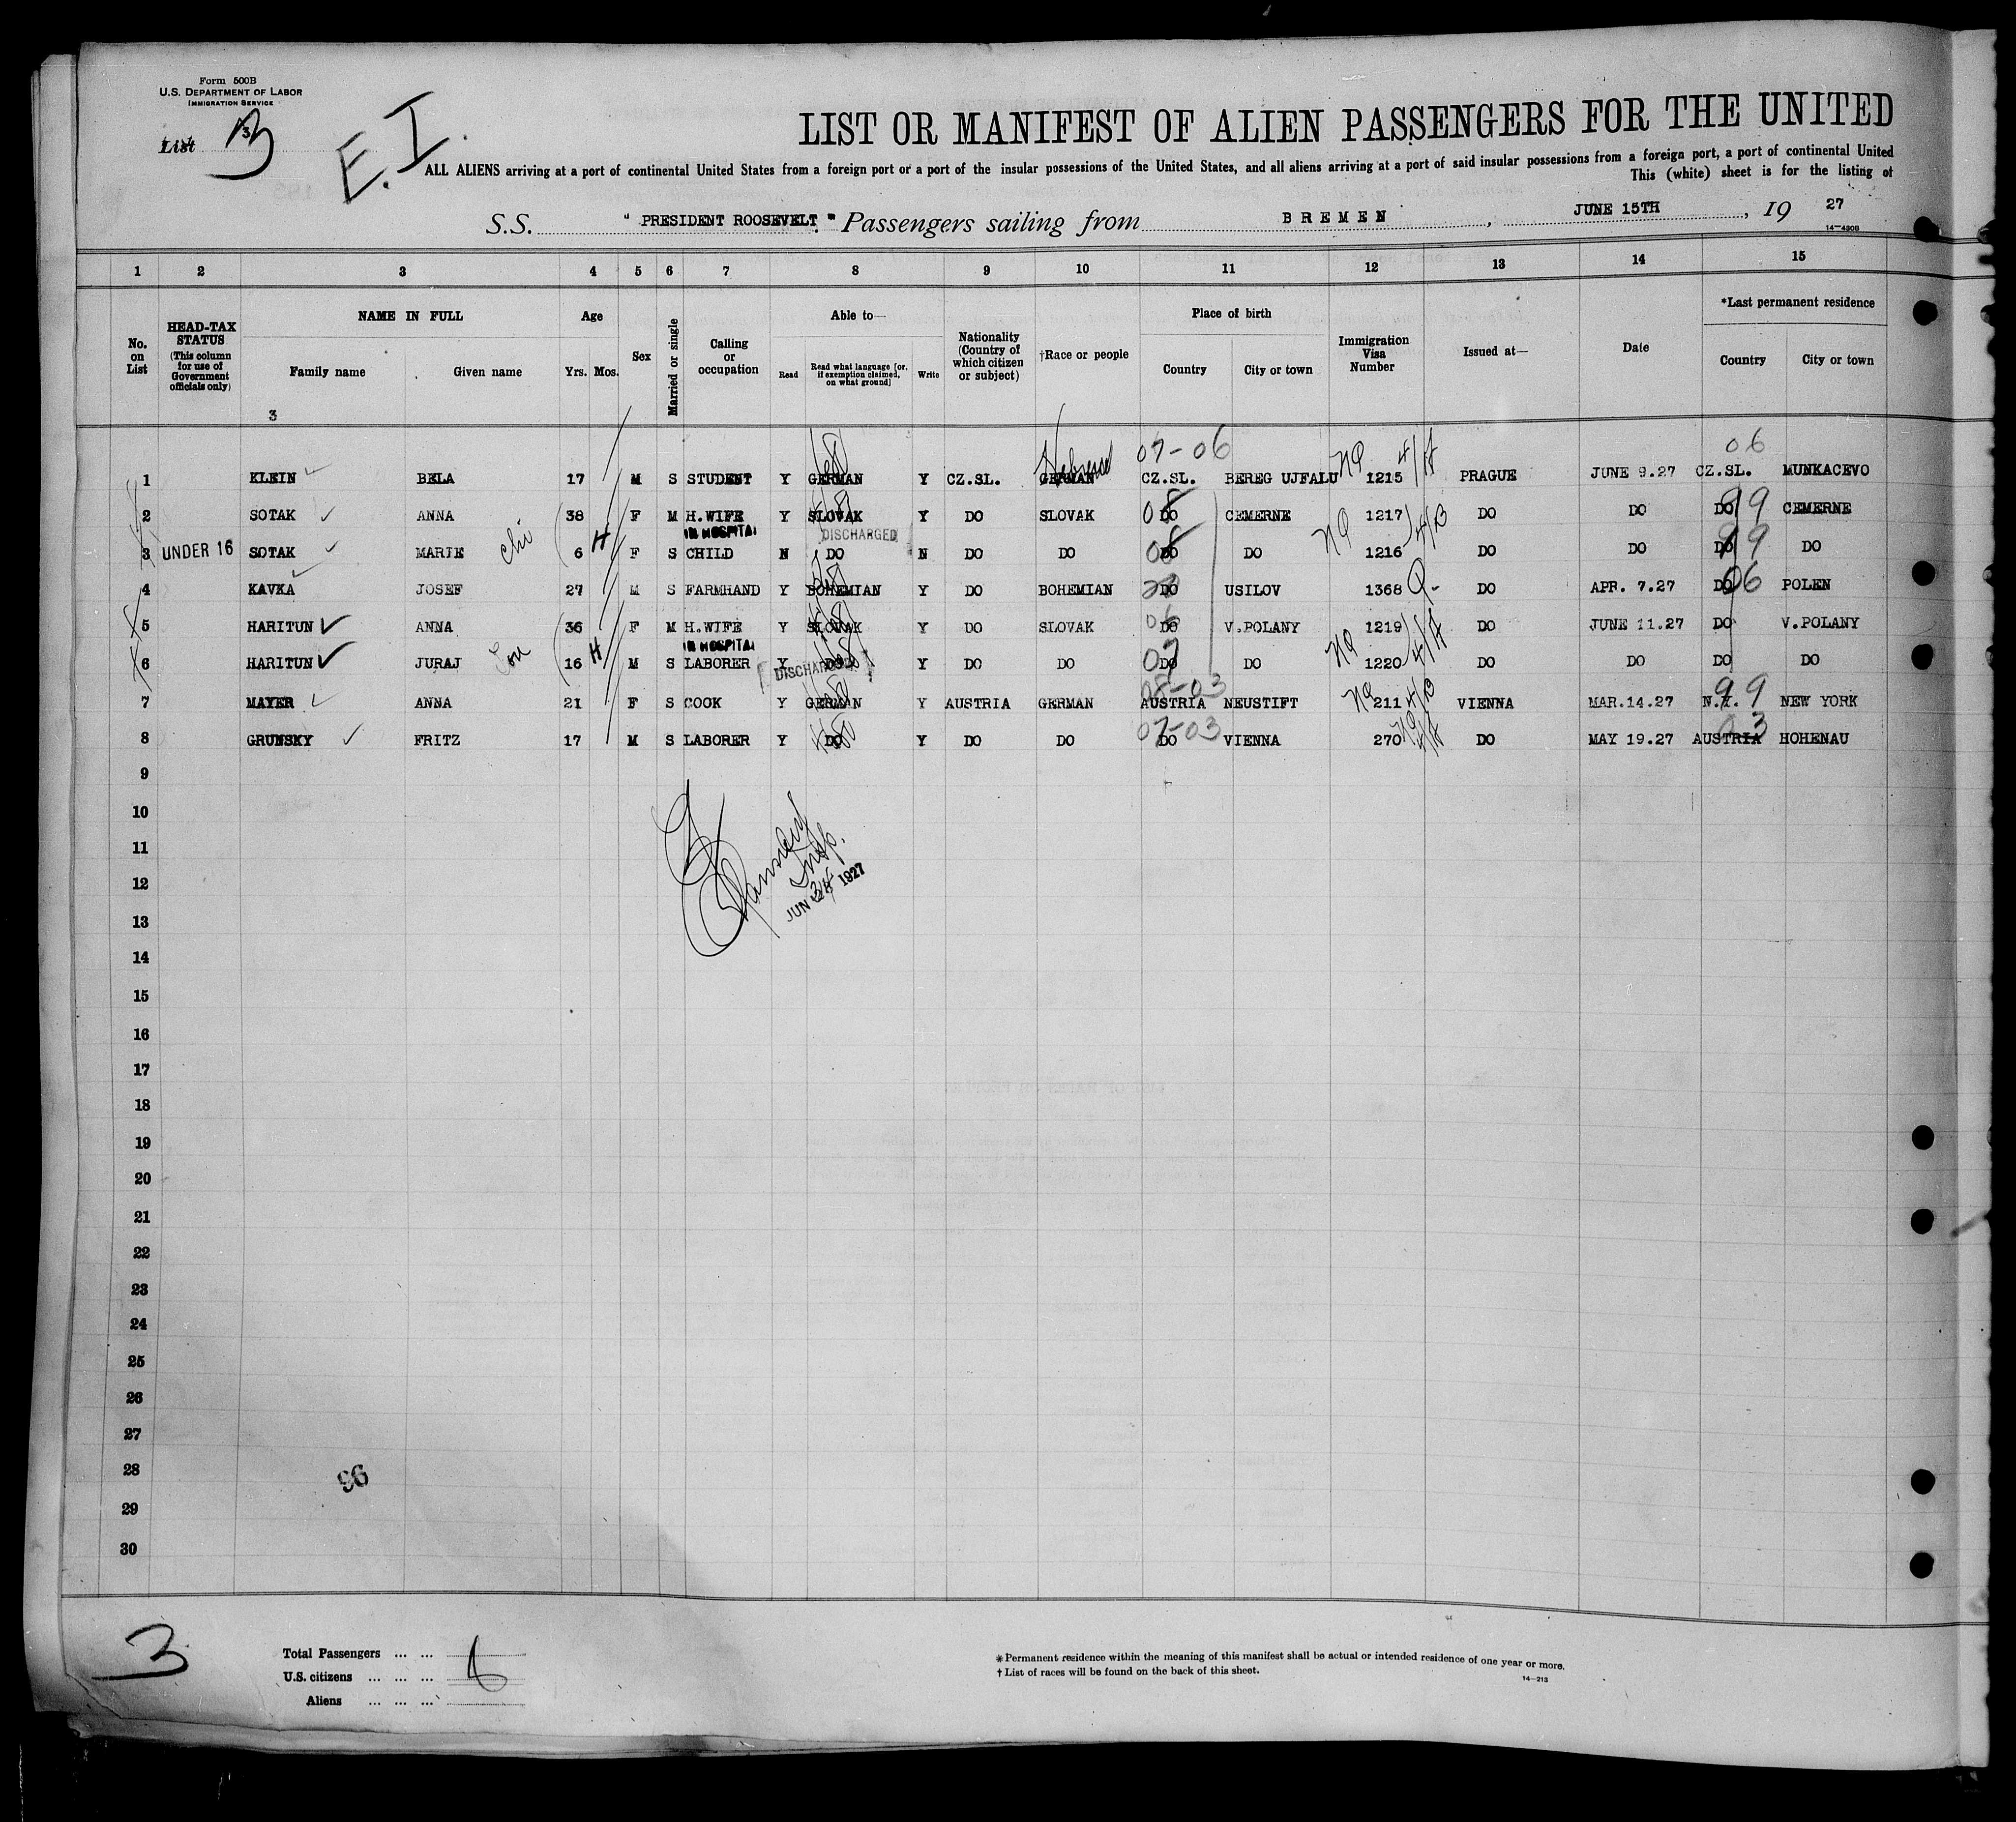 Form 500B
U.S. DEPARTMENT OF LABOR
IMMIGRATION SERVICE
List 3
E.I.
LIST OR MANIFEST OF ALIEN PASSENGERS FOR THE UNITED
ALL ALIENS arriving at a port of continental United States from a foreign port or a port of the insular possessions of the United States, and all aliens arriving at a port of said insular possessions from a foreign port, a port of continental United
This (white) sheet is for the listing of
S.S. "PRESIDENT ROOSEVELT." Passengers sailing from BREMEN, JUNE 15TH, 19 27
14—430B
1 2 3 4 5 6 7 8 9 10 11 12 13 14 15
No. on List
HEAD-TAX STATUS (This column for use of Government officials only)
NAME IN FULL
Family name Given name
Age
Yrs. Mos.
Sex
Married or single
Calling or occupation
Able to—
Read Read what language [or, if exemption claimed, on what ground] Write
Nationality (Country of which citizen or subject)
†Race or people
Place of birth
Country City or town
Immigration Visa Number
Issued at—
Date
*Last permanent residence
Country City or town
3
07-06 06
1 KLEIN BELA 17 M S STUDENT Y GERMAN Y CZ.SL. GERMAN Hebrew CZ.SL. BEREG UJFALU NQ 1215 4/A PRAGUE JUNE 9.27 CZ.SL. MUNKACEVO
2 SOTAK ANNA 38 F M H.WIFE Y SLOVAK Y DO SLOVAK DO 08 CEMERNE 1217 DO DO DO 99 CEMERNE
IN HOSPITAL DISCHARGED
3 UNDER 16 SOTAK MARIE chi 6 H F S CHILD N DO N DO DO DO 08 DO NQ 1216 4/B DO DO DO 99 DO
4 KAVKA JOSEF 27 M S FARMHAND Y BOHEMIAN Y DO BOHEMIAN DO USILOV 1368 Q- DO APR. 7.27 DO 06 POLEN
5 HARITUN ANNA 36 F M H.WIFE Y SLOVAK Y DO SLOVAK DO 06 V.POLANY 1219 DO JUNE 11.27 DO V.POLANY
IN HOSPITAL DISCHARGED
6 HARITUN JURAJ Son 16 H M S LABORER Y DO Y DO DO DO 07 DO NQ 1220 4/A DO DO DO DO
08-03 99
7 MAYER ANNA 21 F S COOK Y GERMAN Y AUSTRIA GERMAN AUSTRIA NEUSTIFT NQ 211 4/B VIENNA MAR.14.27 N.Y. NEW YORK
07-03 03
8 GRUNSKY FRITZ 17 M S LABORER Y DO Y DO DO DO VIENNA 270 NQ 4/A DO MAY 19.27 AUSTRIA HOHENAU
9
10
11
Insp.
12
JUN 24 1927
13
14
15
16
17
18
19
20
21
22
23
24
25
26
27
28
96
29
30
3
Total Passengers ... ...
U.S. citizens ... ... ...
Aliens ... ... ...
* Permanent residence within the meaning of this manifest shall be actual or intended residence of one year or more.
† List of races will be found on the back of this sheet.
14—213